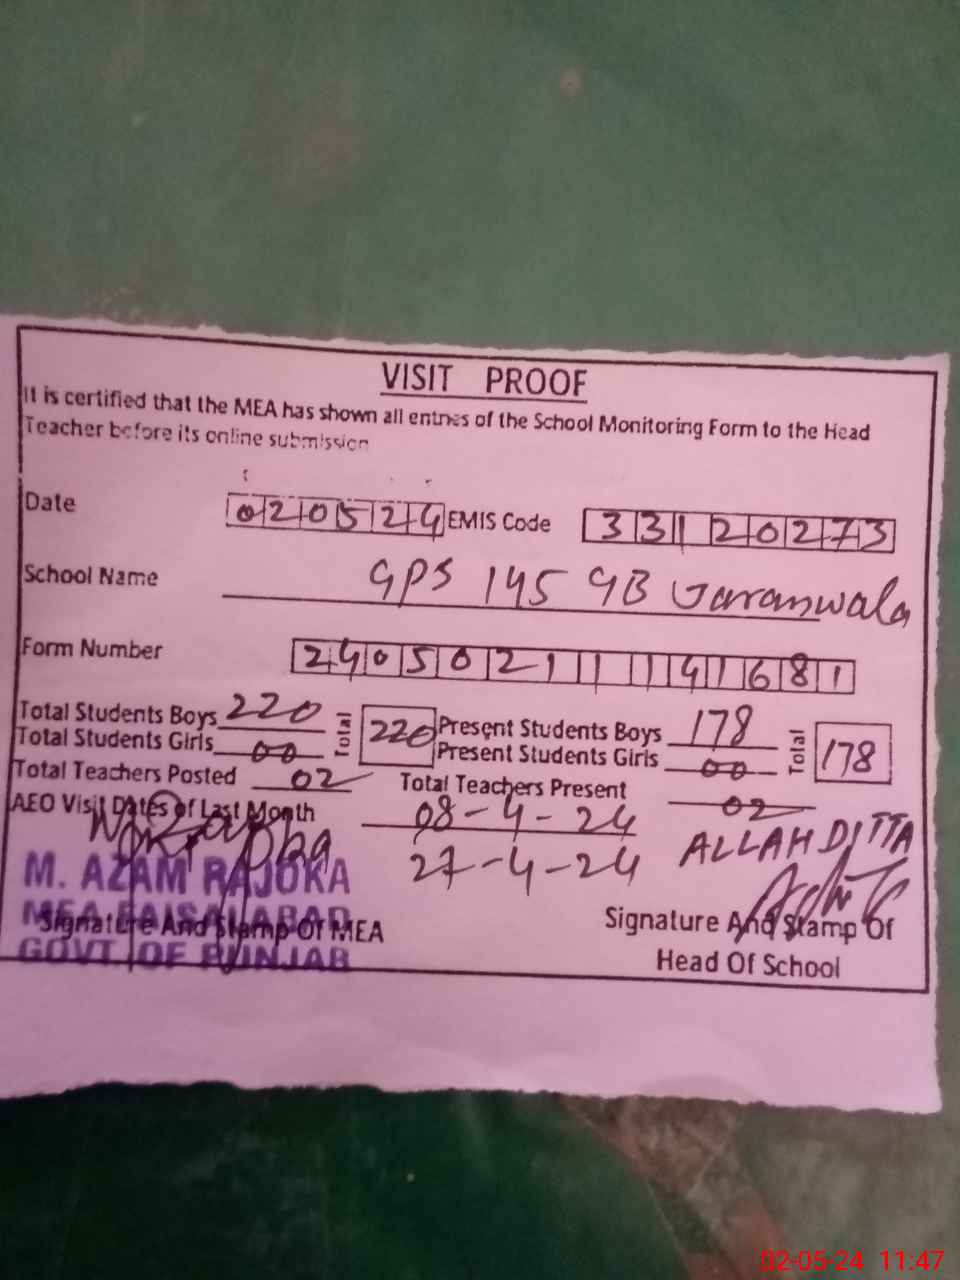 VISIT PROOF
It is certified that the MEA has shown all entries of the School Monitoring Form to the Head
Teacher before its online submission
Date 020524 EMIS Code 33120273
School Name GPS 145 GB Jaranwala
Form Number 240502111141681
Total Students Boys 220 Total 220 Present Students Boys 178 Total 178
Total Students Girls 00 Present Students Girls 00
Total Teachers Posted 02 Total Teachers Present 02
AEO Visit Dates of Last Month 08-4-24
27-4-24 ALLAH DITTA
M. AZAM RAJOKA
MEA FAISALABAD
Signature And Stamp Of MEA Signature And Stamp Of
GOVT. OF PUNJAB Head Of School
02-05-24 11:47